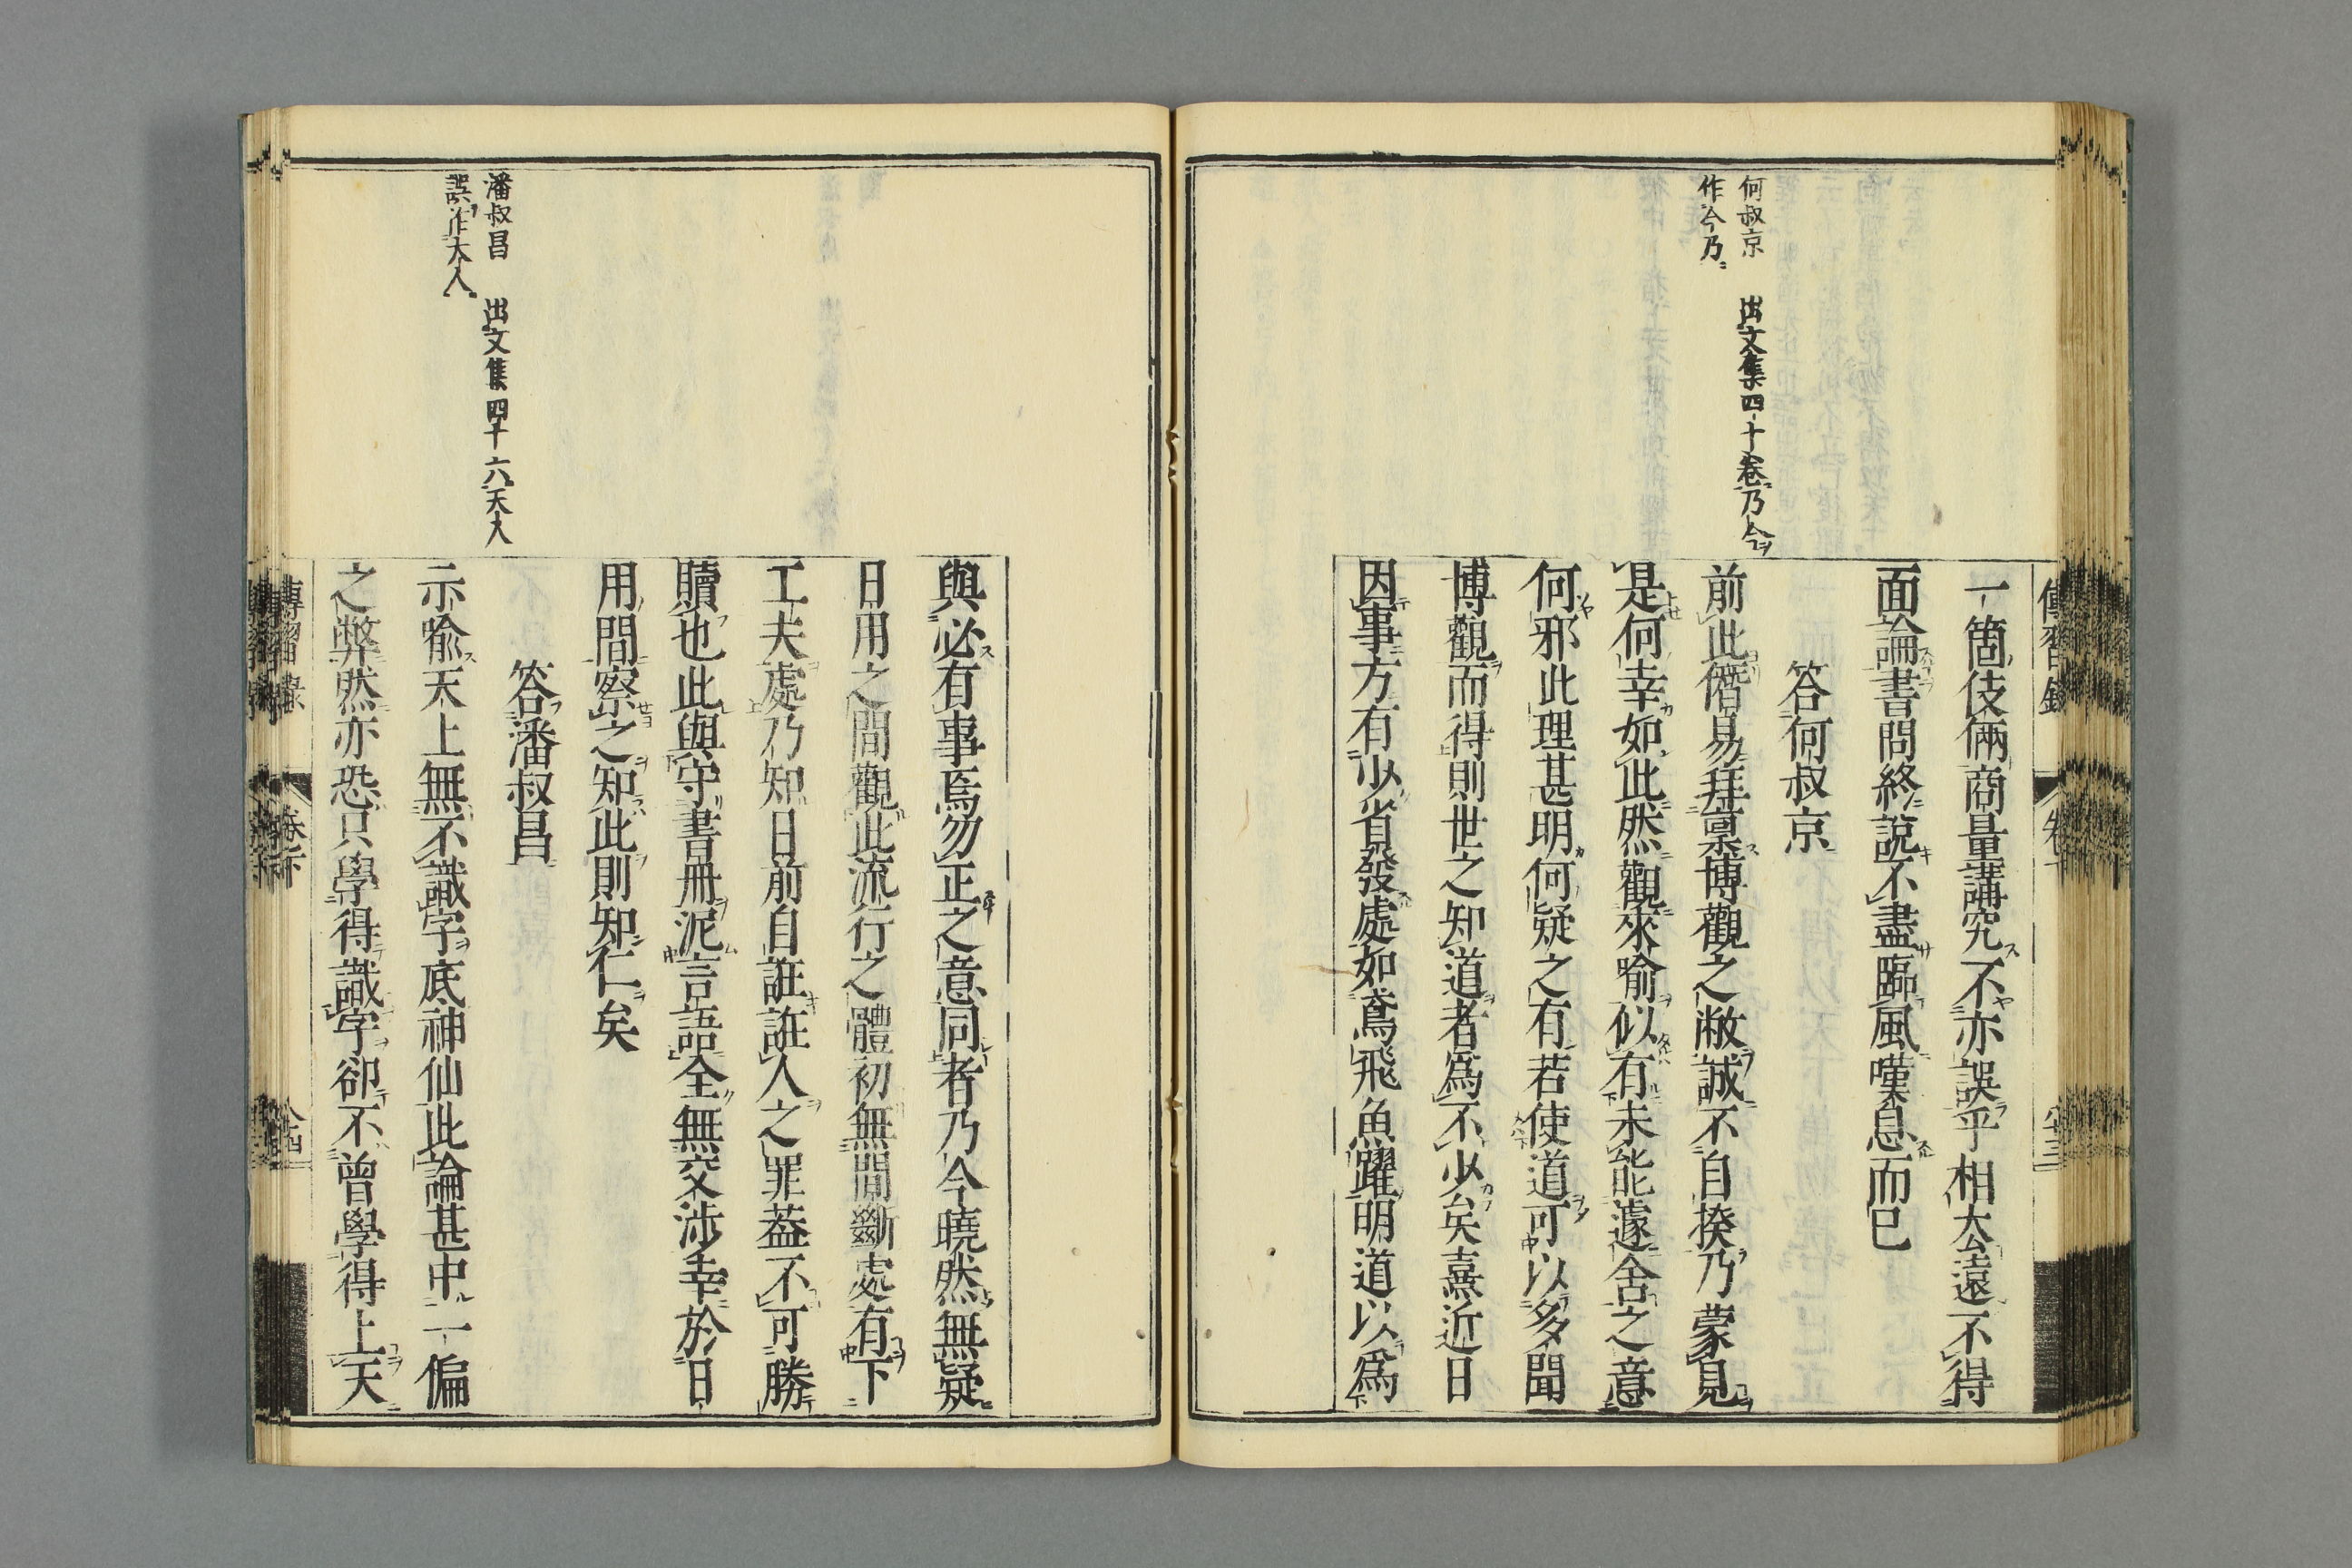 何叔京　出文集四十卷乃今
作今乃
一箇伎倆商量講究不亦誤乎相去遠不得
面論書問終說不盡臨風嘆息而已
答何叔京
前此僭易拜稟博觀之敝誠不自揆乃蒙見
是何幸如此然觀來喻似有未能遽舍之意
何邪此理甚明何疑之有若使道可以多聞
博觀而得則世之知道者爲不少矣熹近日
因事方有少省發處如鳶飛魚躍明道以爲
潘叔昌　出文集四十六天人
誤作大人
與必有事焉勿正之意同者乃今曉然無疑
日用之間觀此流行之體初無間斷處有下
工夫處乃知日前自誑誑人之罪蓋不可勝
贖也此與守書冊泥言語全無交涉幸於日
用間察之知此則知仁矣
答潘叔昌
示喻天上無不識字底神仙此論甚中一偏
之弊然亦恐只學得識字卻不曾學得上天
傳習錄　卷下　八四